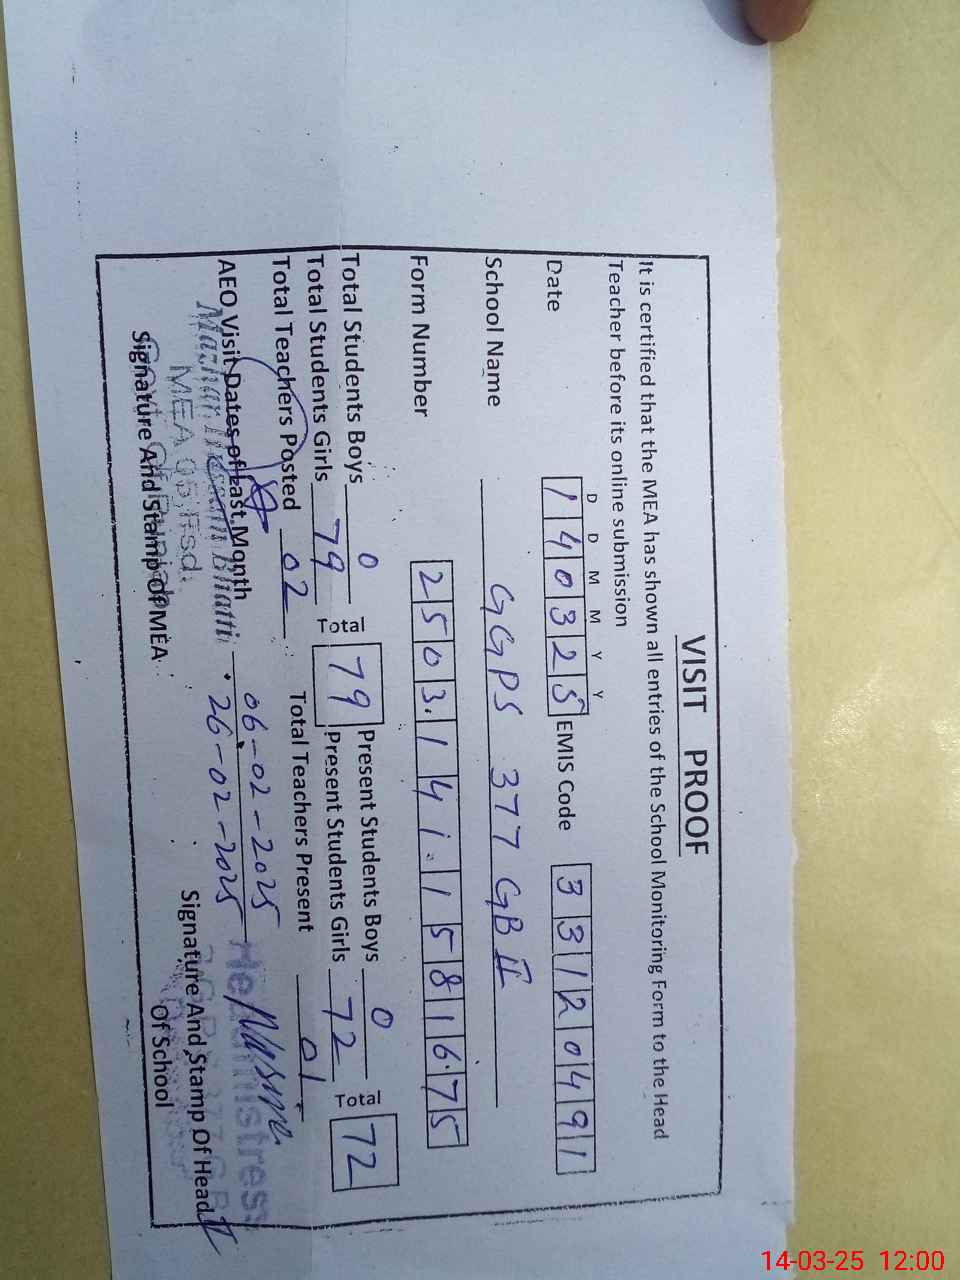 VISIT PROOF
It is certified that the MEA has shown all entries of the School Monitoring Form to the Head
Teacher before its online submission
D D M M Y Y
Date 140325 EMIS Code 33120491
School Name GGPS 377 GB II
Form Number 2503.141.1581675
Total Students Boys 0 Present Students Boys 0
Total Students Girls 79 Total 79 Present Students Girls 72 Total 72
Total Teachers Posted 02 Total Teachers Present 01
AEO Visit Dates of Last Month 06-02-2025
26-02-2025
Bhatti
MEA 95, Fsd.
Headmistress
Signature And Stamp Of MEA
Signature And Stamp Of Head
Of School
14-03-25 12:00